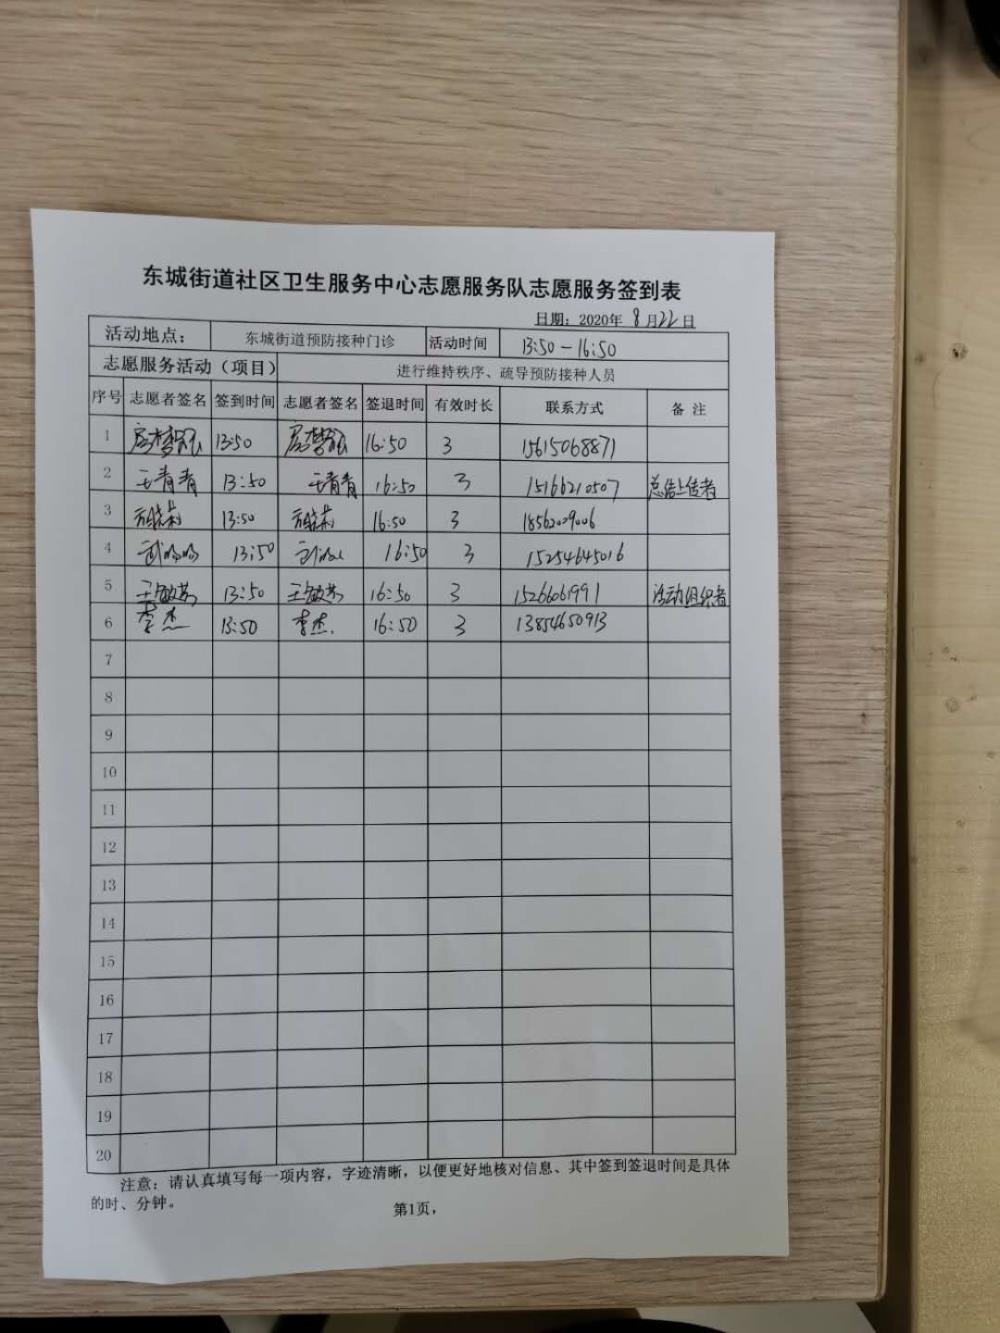 东城街道社区卫生服务中心志愿服务队志愿服务签到表
日期：2020年 8月22日
活动地点： 东城街道预防接种门诊 活动时间 13:50－16:50
志愿服务活动（项目） 进行维持秩序、疏导预防接种人员
序号 志愿者签名 签到时间 志愿者签名 签退时间 有效时长 联系方式 备 注
1 13:50 16:50 3 15615068871
2 王青青 13:50 王青青 16:50 3 15166210507 总结上传者
3 13:50 16:50 3 18562009006
4 13:50 16:50 3 15254645016
5 王敏 13:50 王敏 16:50 3 15266061991 活动组织者
6 李杰 13:50 李杰 16:50 3 13854650913
7
8
9
10
11
12
13
14
15
16
17
18
19
20
注意：请认真填写每一项内容，字迹清晰，以便更好地核对信息、其中签到签退时间是具体
的时、分钟。
第1页，